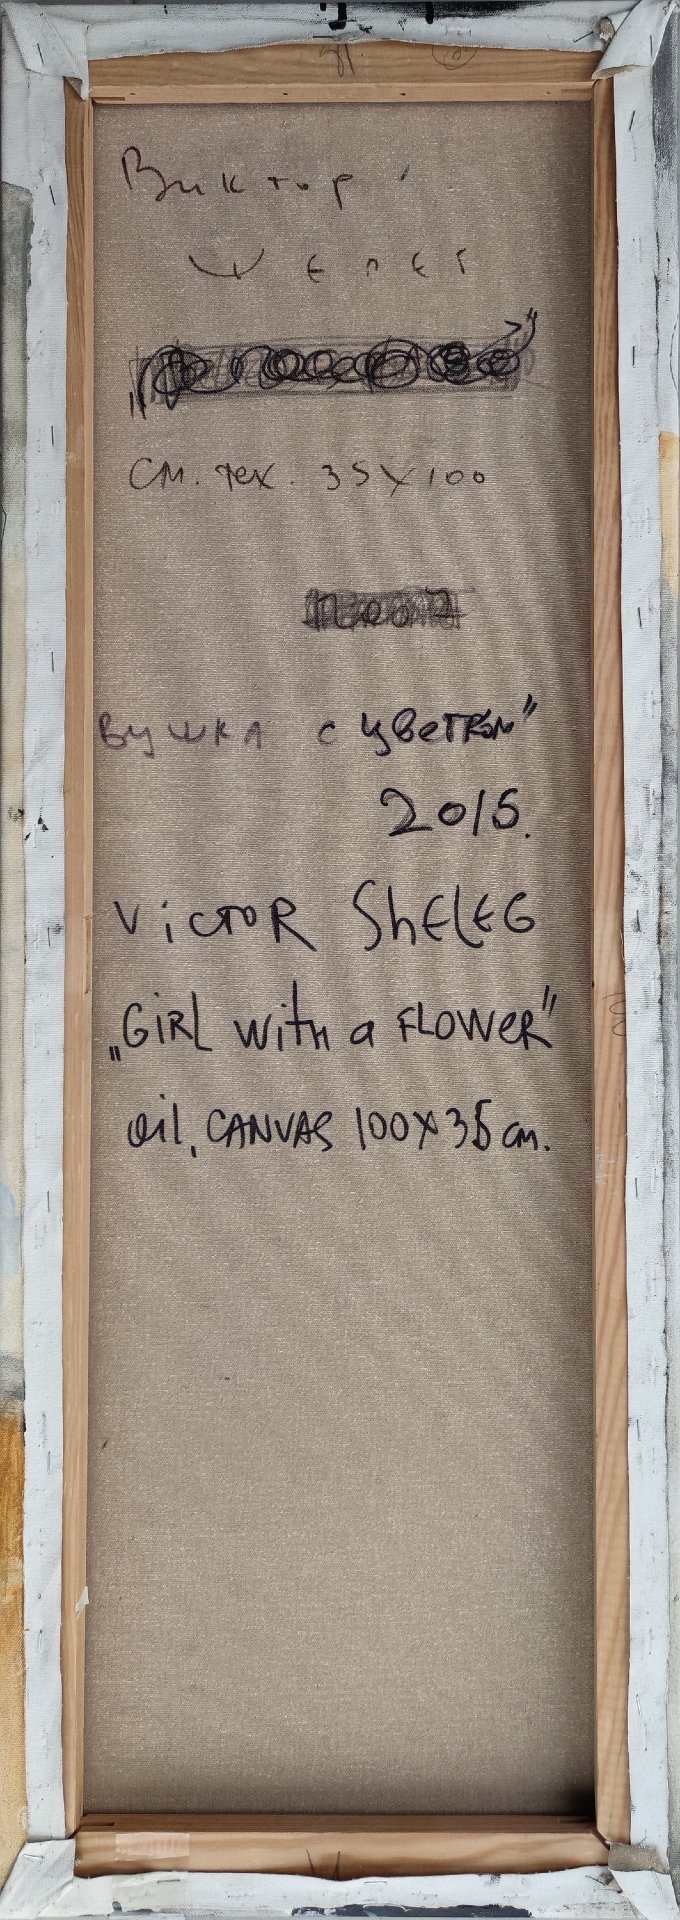 Виктор
Шелег
см. тех. 35X100
вушка с цветком"
2015.
VICTOR ShELEG
„GIRL with a FLOWER"
oil, CANVAS 100X35 cm.